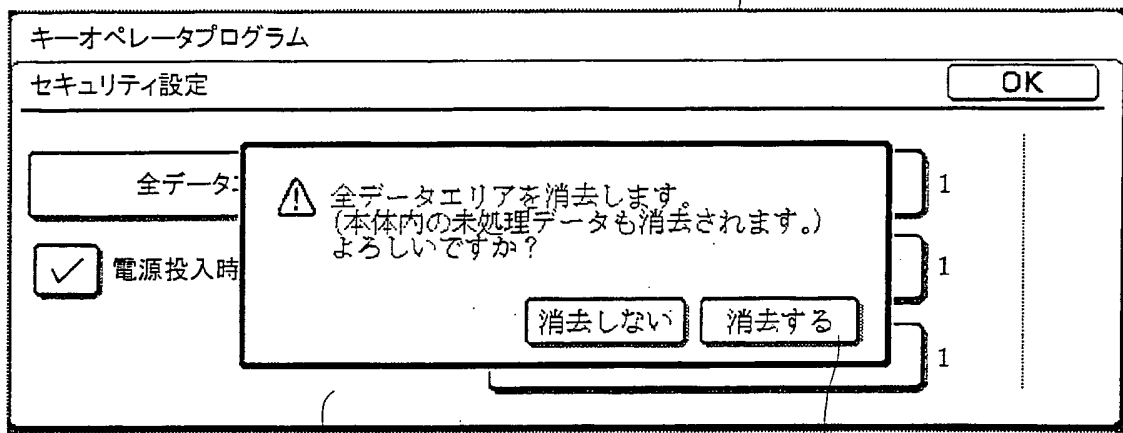 キーオペレータプログラム
セキュリティ設定
OK
全データ
1
⚠ 全データエリアを消去します。
(本体内の未処理データも消去されます。)
よろしいですか?
✓ 電源投入時
1
消去しない
消去する
1